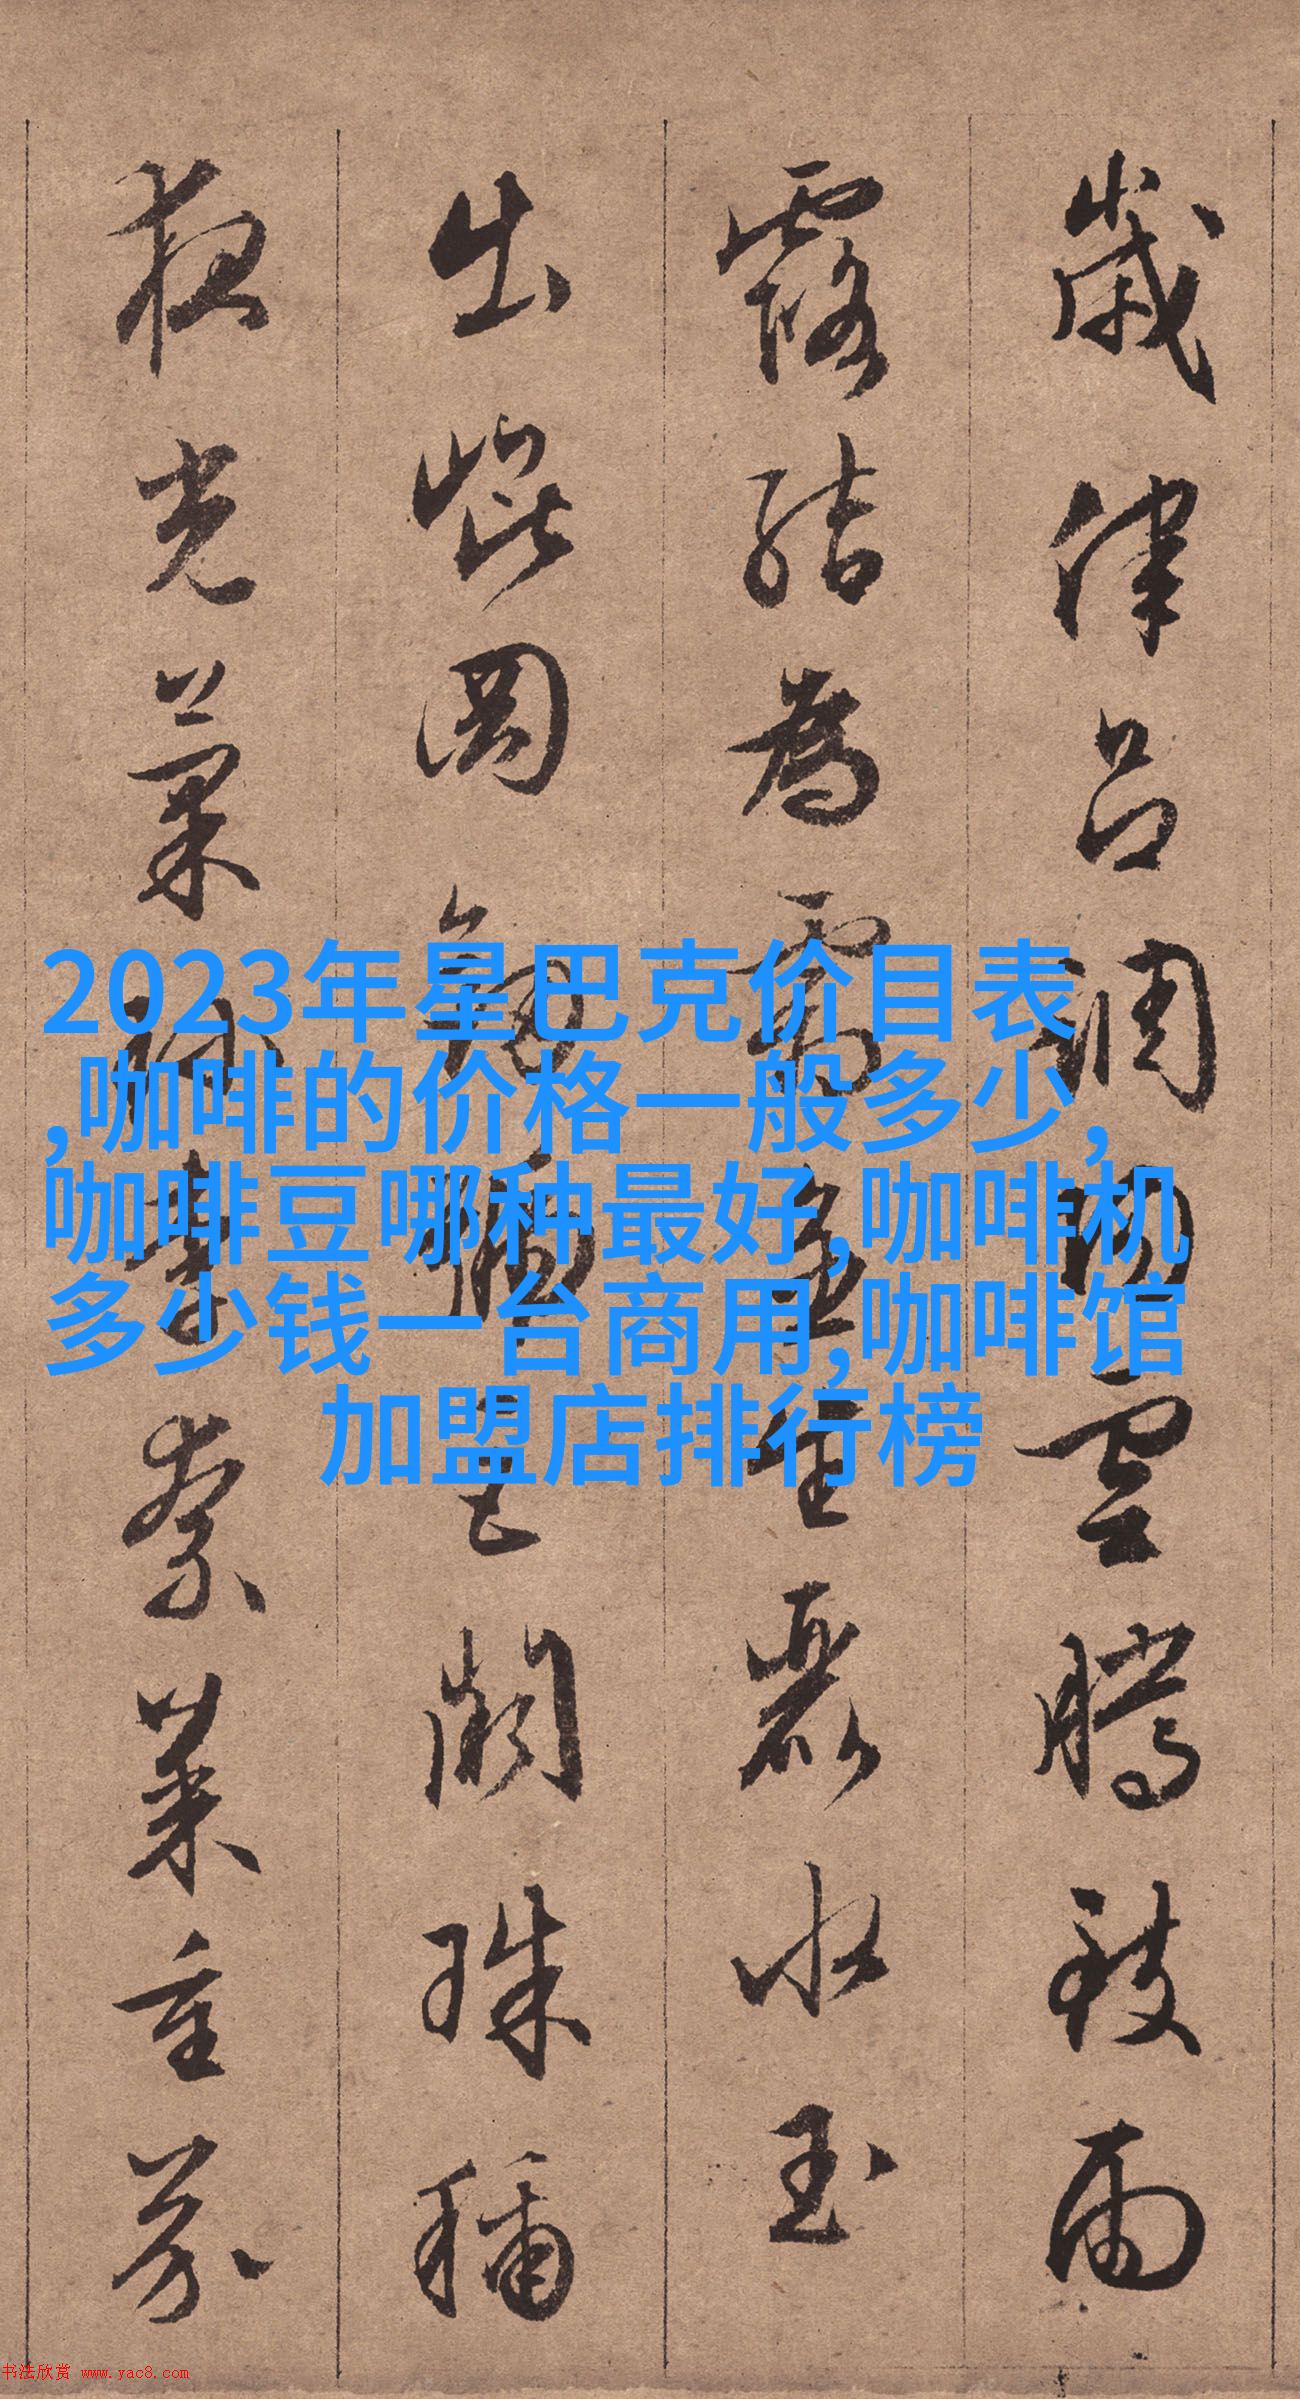 歲律呂調陽雲騰致雨
露結為霜金生麗水玉
出崐岡劍號巨闕珠稱
夜光菓珍李柰菜重芥
2023年星巴克价目表
,咖啡的价格一般多少,
咖啡豆哪种最好,咖啡机
多少钱一台商用,咖啡馆
加盟店排行榜
书法欣赏 www.yac8.com